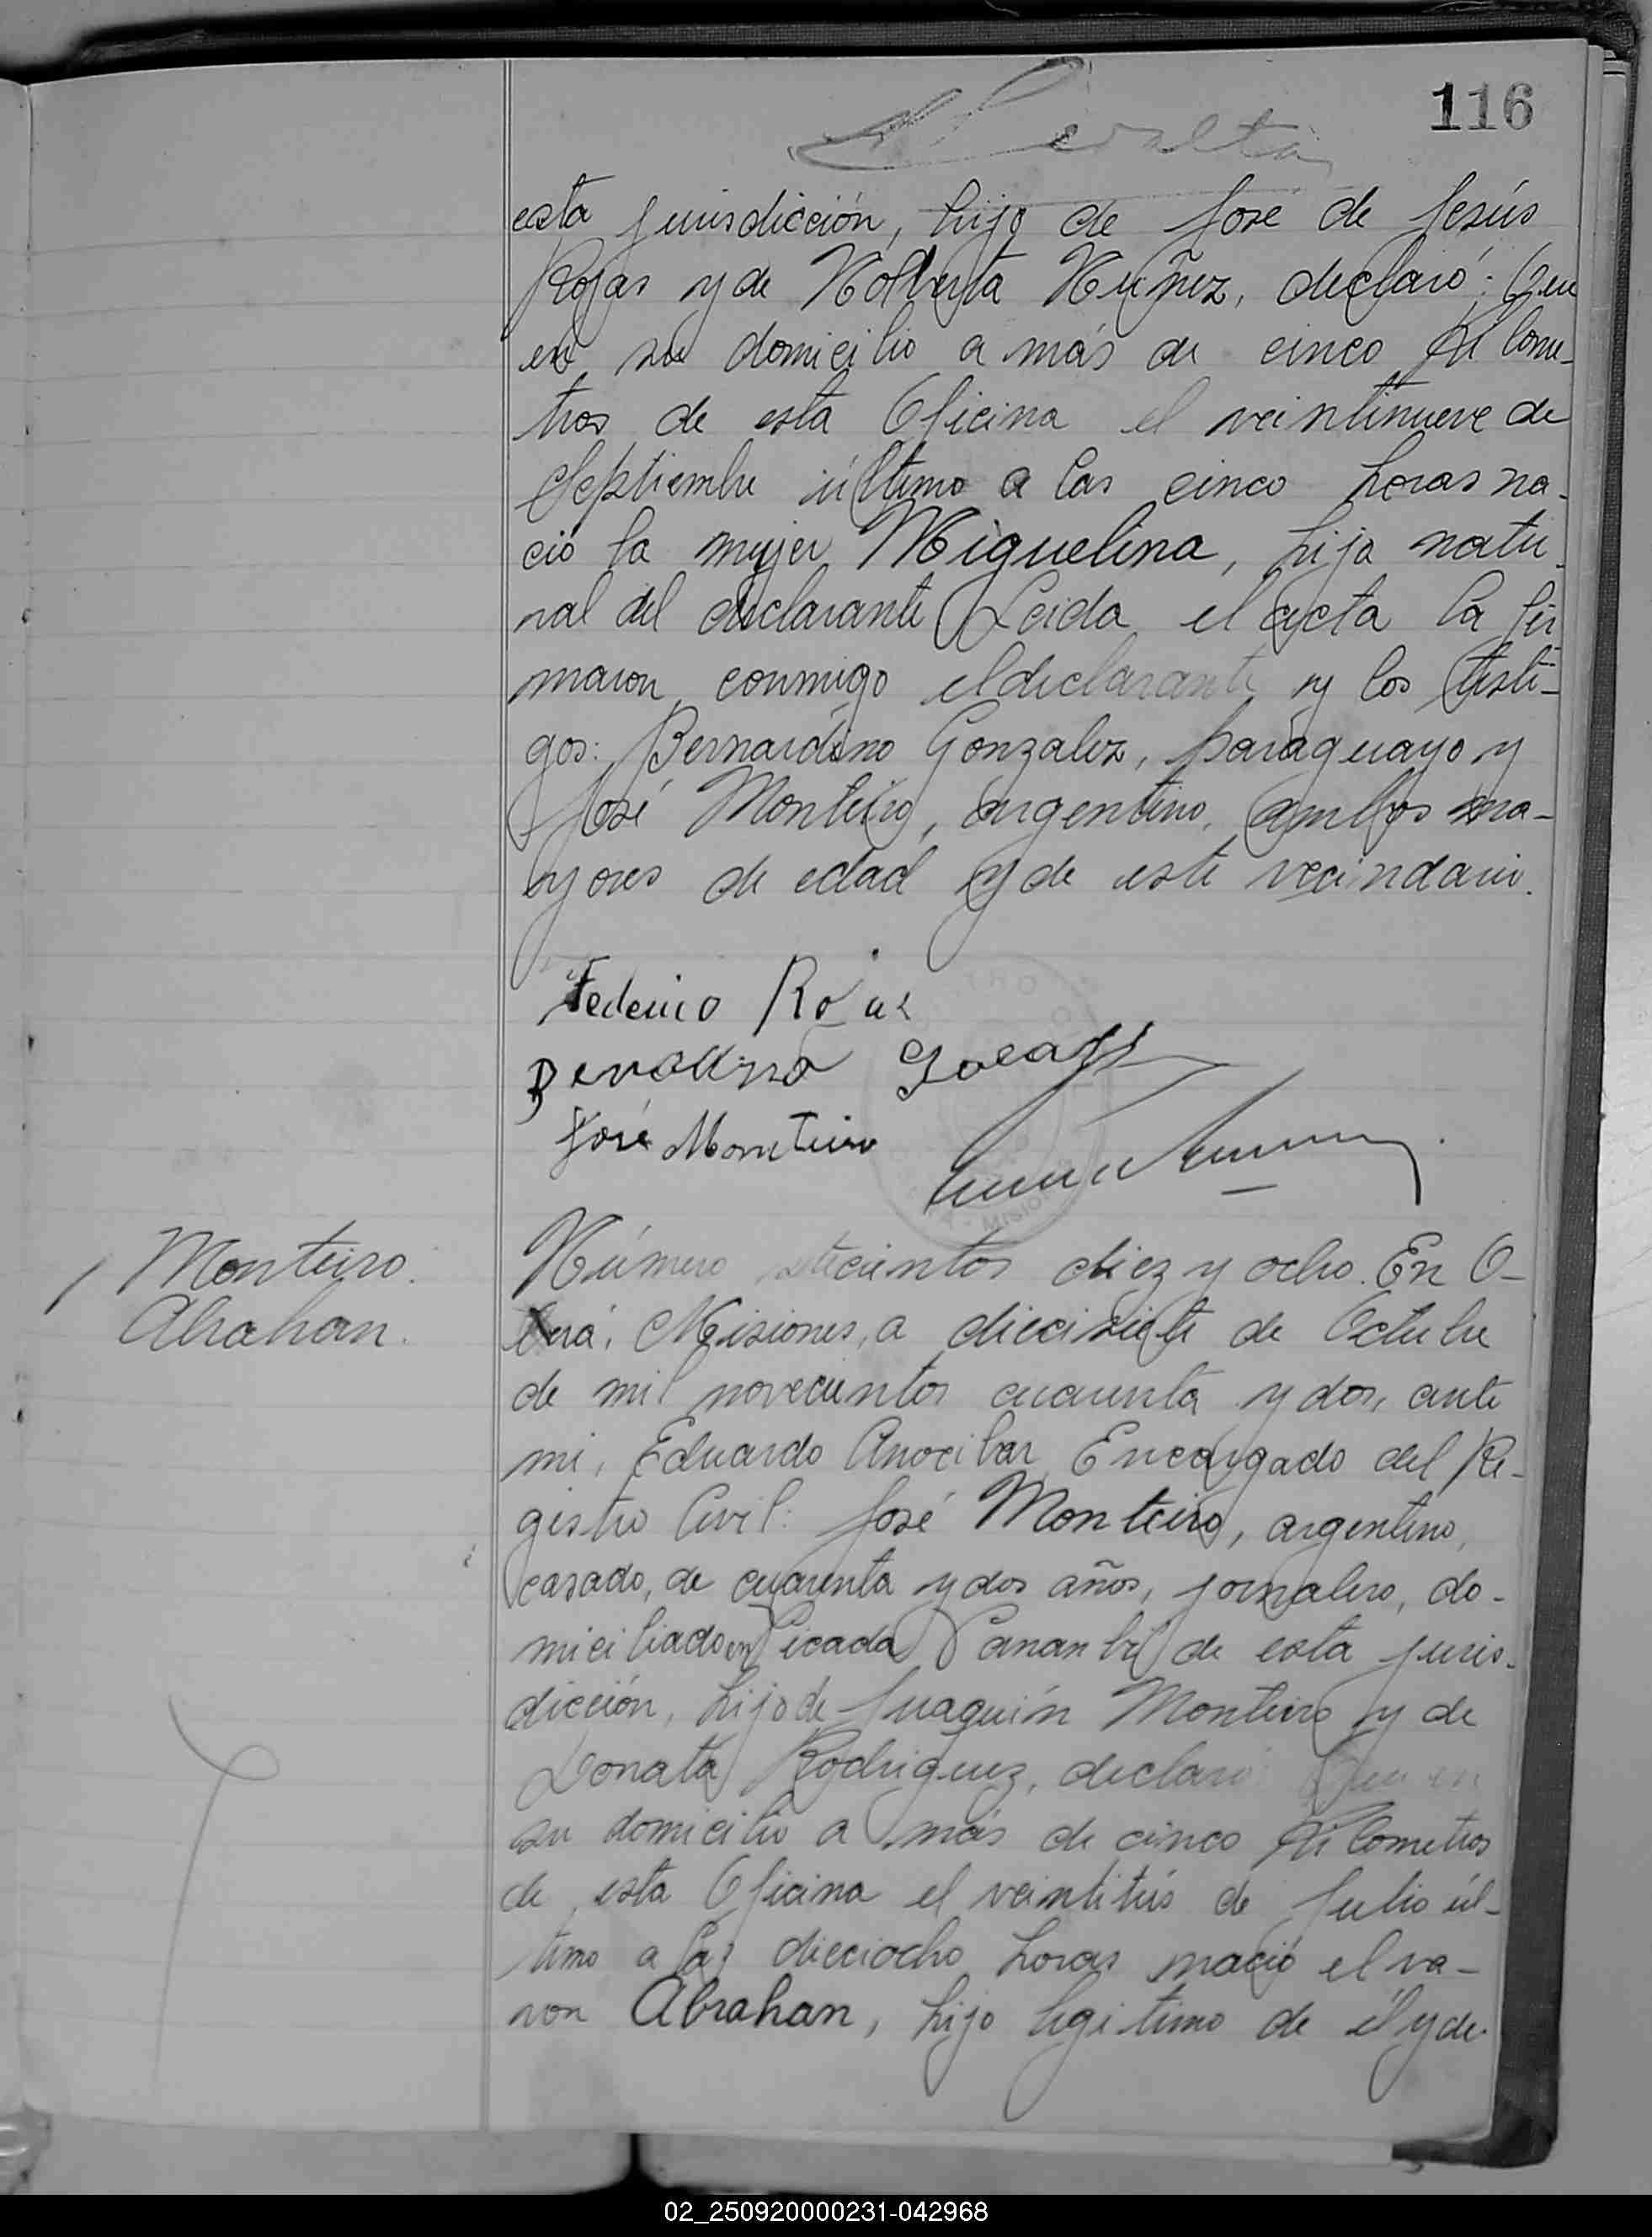 116
Peralta
esta jurisdicción, hijo de José de Jesús
Rojas y de Nolberta Nuñez, declaró: Que
en su domicilio a más de cinco kilome-
tros de esta Oficina el veintinueve de
Septiembre último a las cinco horas na-
ció la mujer Miguelina, hija natu-
ral del declarante Leida el acta la fir
maron conmigo el declarante y los testi-
gos: Bernardino Gonzalez, paraguayo y
José Monteiro, argentino, ambos ma-
yores de edad y de este vecindario.
Federico Rojas
José Monteiro
MISIO
Monteiro
Abrahan.
Número setecientos diez y ocho. En O-
berá, Misiones, a diecisiete de Octubre
de mil novecientos cuarenta y dos, ante
mi, Eduardo Anocibar Encargado del Re-
gistro Civil: José Monteiro, argentino,
casado, de cuarenta y dos años, jornalero, do-
miciliado en Picada Panambí de esta juris-
dicción, hijo de Juaquín Monteiro y de
Donata Rodriguez, declaró: Que en
su domicilio a más de cinco kilometros
de esta Oficina el veintitrés de Julio úl-
timo a las dieciocho horas nació el va-
ron Abrahan, hijo legitimo de él y de
02_250920000231-042968